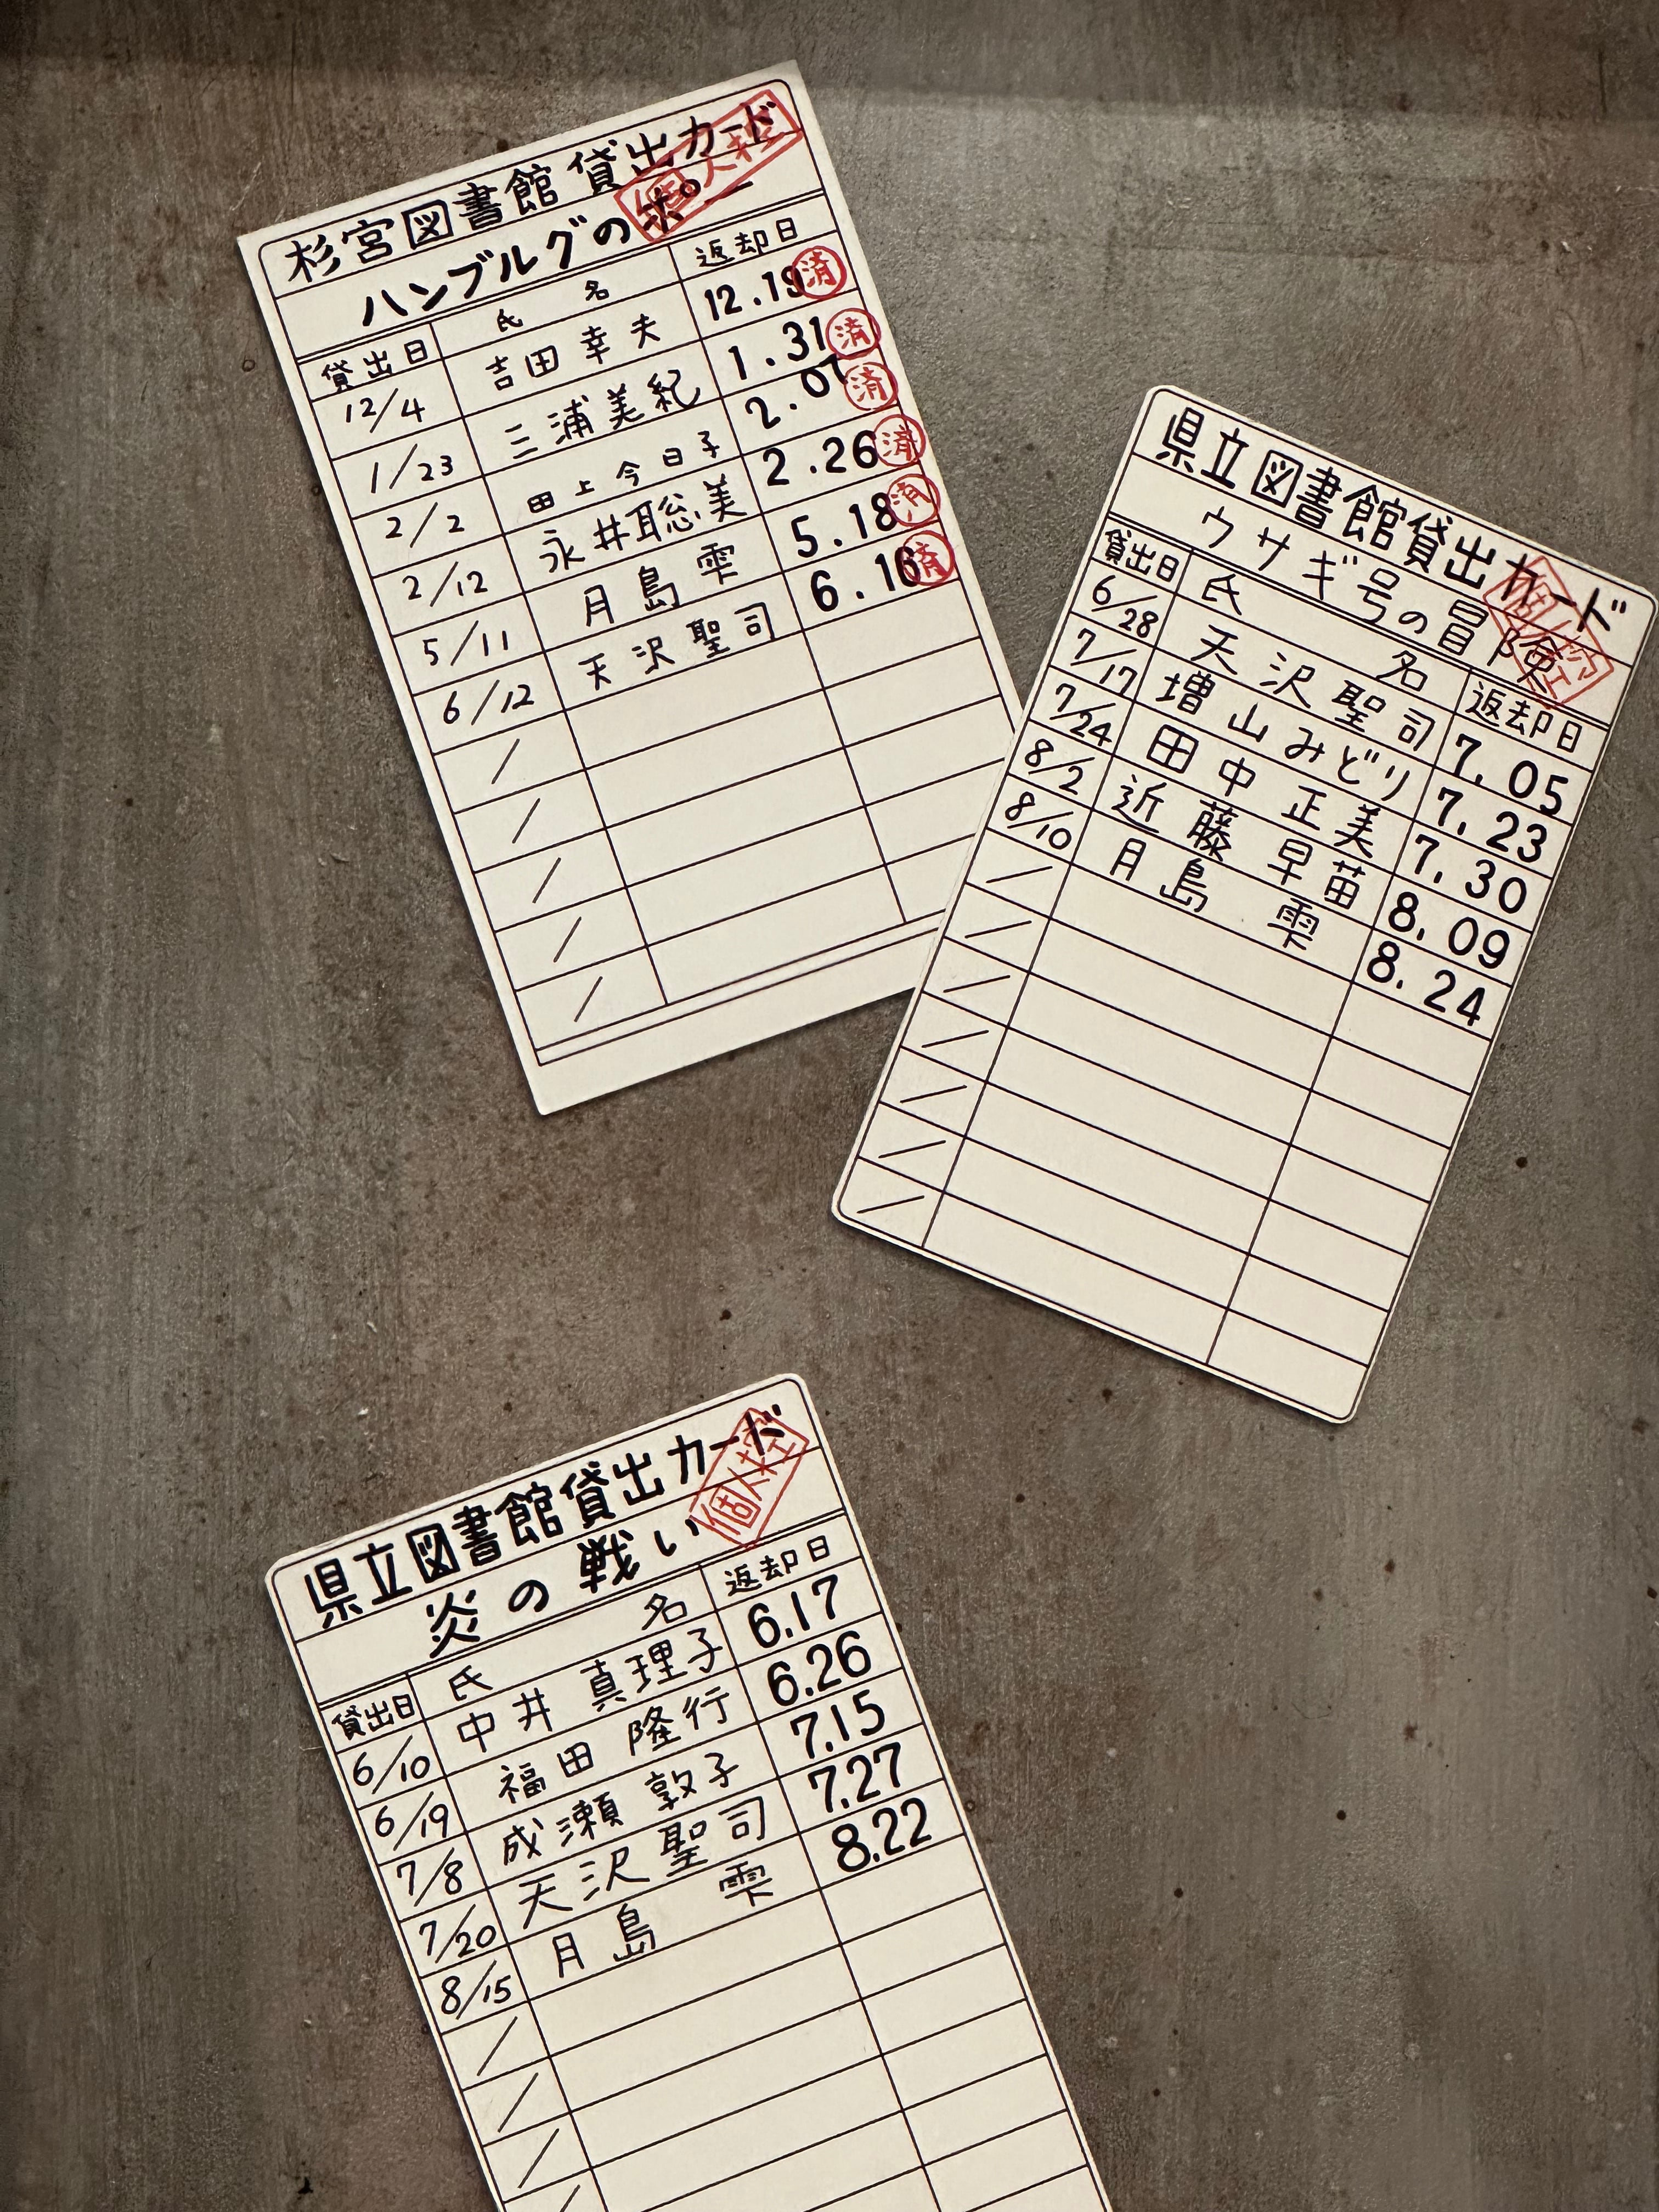 杉宮図書館 貸出カード
個人控
ハンブルグのポー
貸出日 氏 名 返却日
12/4 吉田幸夫 12.19 済
1/23 三浦美紀 1.31 済
2/2 田上今日子 2.07 済
2/12 永井聡美 2.26 済
5/11 月島雫 5.18 済
6/12 天沢聖司 6.16 済
/
/
/
/
/
県立図書館貸出カード
個人控
ウサギ号の冒険
貸出日 氏 名 返却日
6/28 天沢聖司 7.05
7/17 増山みどり 7.23
7/24 田中正美 7.30
8/2 近藤早苗 8.09
8/10 月島雫 8.24
/
/
/
/
/
/
/
県立図書館貸出カード
個人控
炎の戦い
貸出日 氏 名 返却日
6/10 中井真理子 6.17
6/19 福田隆行 6.26
7/8 成瀬敦子 7.15
7/20 天沢聖司 7.27
8/15 月島雫 8.22
/
/
/
/